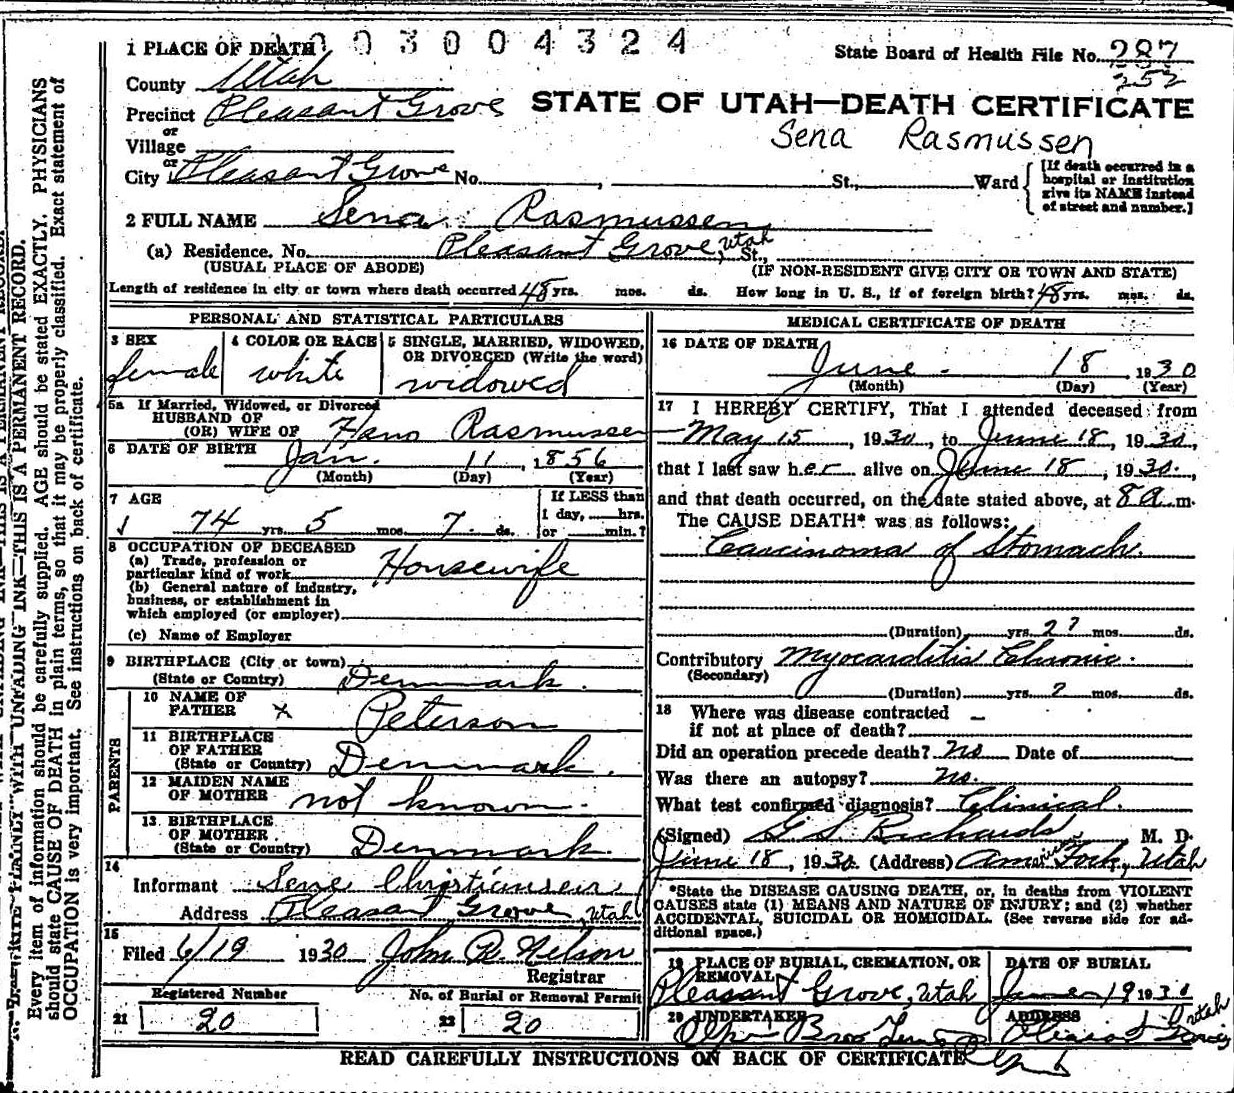 003004324
1 PLACE OF DEATH
State Board of Health File No. 287
252
County Utah
Precinct Pleasant Grove
or
Village
or
City Pleasant Grove No. , St., Ward
STATE OF UTAH—DEATH CERTIFICATE
Sena Rasmussen
[If death occurred in a
hospital or institution
give its NAME instead
of street and number.]
2 FULL NAME Sena Rasmussen
(a) Residence. No. Pleasant Grove, Utah St.,
(USUAL PLACE OF ABODE) (IF NON-RESIDENT GIVE CITY OR TOWN AND STATE)
Length of residence in city or town where death occurred 48 yrs. mos. ds. How long in U. S., if of foreign birth? 48 yrs. mos. ds.
PERSONAL AND STATISTICAL PARTICULARS
3 SEX
female
4 COLOR OR RACE
white
5 SINGLE, MARRIED, WIDOWED,
OR DIVORCED (Write the word)
widowed
5a If Married, Widowed, or Divorced
HUSBAND OF
(OR) WIFE OF Hans Rasmussen
6 DATE OF BIRTH Jan. 11, 1856
(Month) (Day) (Year)
7 AGE
74 yrs. 5 mos. 7 ds.
If LESS than
1 day, hrs.
or min.?
8 OCCUPATION OF DECEASED
(a) Trade, profession or
particular kind of work Housewife
(b) General nature of industry,
business, or establishment in
which employed (or employer)
(c) Name of Employer
9 BIRTHPLACE (City or town)
(State or Country) Denmark.
PARENTS
10 NAME OF
FATHER x Peterson
11 BIRTHPLACE
OF FATHER
(State or Country) Denmark.
12 MAIDEN NAME
OF MOTHER not known.
13 BIRTHPLACE
OF MOTHER
(State or Country) Denmark.
14
Informant Sene Christiansen
Address Pleasant Grove, Utah
15
Filed 6/19 1930 John R Nelson
Registrar
Registered Number No. of Burial or Removal Permit
21 20 22 20
MEDICAL CERTIFICATE OF DEATH
16 DATE OF DEATH
June 18 1930
(Month) (Day) (Year)
17 I HEREBY CERTIFY, That I attended deceased from
May 15, 1930, to June 18, 1930,
that I last saw her alive on June 18, 1930.
and that death occurred, on the date stated above, at 8 a m.
The CAUSE DEATH* was as follows:
Carcinoma of Stomach.
(Duration) yrs. 2? mos. ds.
Contributory Myocarditis Chronic.
(Secondary)
(Duration) yrs. ? mos. ds.
18 Where was disease contracted
if not at place of death?
Did an operation precede death? No Date of
Was there an autopsy? no.
What test confirmed diagnosis? Clinical.
(Signed) G S Richards M. D.
June 18, 1930 (Address) American Fork, Utah
*State the DISEASE CAUSING DEATH, or, in deaths from VIOLENT
CAUSES state (1) MEANS AND NATURE OF INJURY; and (2) whether
ACCIDENTAL, SUICIDAL OR HOMICIDAL. (See reverse side for ad-
ditional space.)
19 PLACE OF BURIAL, CREMATION, OR
REMOVAL
Pleasant Grove, Utah
DATE OF BURIAL
June 19 1930
20 UNDERTAKER
Bros
ADDRESS
Pleasant Grove Utah
READ CAREFULLY INSTRUCTIONS ON BACK OF CERTIFICATE
WITH UNFADING INK—THIS IS A PERMANENT RECORD.
Every item of information should be carefully supplied. AGE should be stated EXACTLY. PHYSICIANS
should state CAUSE OF DEATH in plain terms, so that it may be properly classified. Exact statement of
OCCUPATION is very important. See instructions on back of certificate.